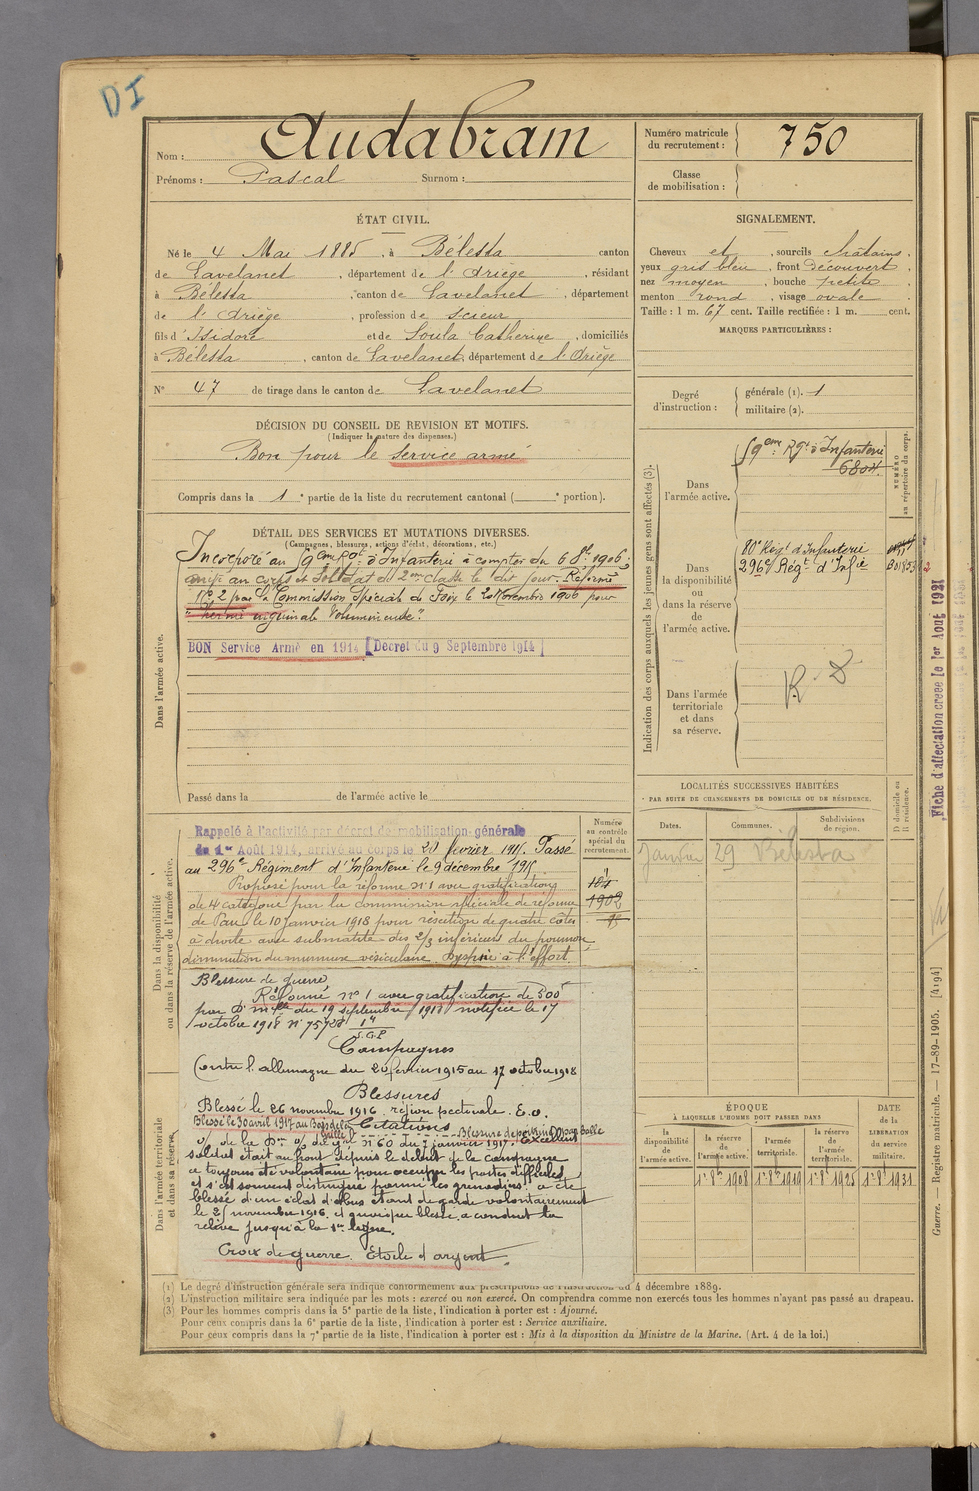 DI
Nom : Audabram
Prénoms : Pascal Surnom :
Numéro matricule du recrutement : 750
Classe de mobilisation :
ÉTAT CIVIL.
Né le 4 Mai 1885, à Bélesta canton
de Lavelanet, département de l'Ariège, résidant
à Bélesta, canton de Lavelanet, département
de l'Ariège, profession de scieur
fils d'Isidore et de Soula Catherine, domiciliés
à Bélesta, canton de Lavelanet, département de l'Ariège
N° 47 de tirage dans le canton de Lavelanet
SIGNALEMENT.
Cheveux et, sourcils châtains,
yeux gris bleu, front Découvert,
nez moyen, bouche petite,
menton rond, visage ovale
Taille : 1 m. 67 cent. Taille rectifiée : 1 m. cent.
MARQUES PARTICULIÈRES :
Degré d'instruction : générale (1). 1
militaire (2).
DÉCISION DU CONSEIL DE REVISION ET MOTIFS.
(Indiquer la nature des dispenses.)
Bon pour le service armé
Compris dans la 1e partie de la liste du recrutement cantonal ( e portion).
DÉTAIL DES SERVICES ET MUTATIONS DIVERSES.
(Campagnes, blessures, actions d'éclat, décorations, etc.)
Dans l'armée active.
Incorporé au 59eme Rgt d'Infanterie à compter du 6 8bre 1906,
arrivé au corps et soldat de 2eme classe le dit jour. Réformé
N° 2 par la Commission Spéciale de Foix le 20 Novembre 1906 pour
"hernie inguinale volumineuse".
BON Service Armé en 1914 [Décret du 9 Septembre 1914]
Passé dans la de l'armée active le
Indication des corps auxquels les jeunes gens sont affectés (3).
NUMÉRO au répertoire du corps.
Dans l'armée active.
59eme Rgt d'Infanterie
6804
Dans la disponibilité ou dans la réserve de l'armée active.
80e Régt d'Infanterie
296e Régt d'Infie
Dans l'armée territoriale et dans sa réserve.
R D
Fiche d'affectation créée le 1er Août 1921
LOCALITÉS SUCCESSIVES HABITÉES
PAR SUITE DE CHANGEMENTS DE DOMICILE OU DE RÉSIDENCE.
Dates. Communes. Subdivisions de région. D domicile ou R résidence.
Janvier 29 Bélesta
Dans la disponibilité ou dans la réserve de l'armée active.
Numéro au contrôle spécial du recrutement.
Rappelé à l'activité par décret de mobilisation générale
du 1er Août 1914, arrivé au corps le 20 février 1915. Passé
au 296e Régiment d'Infanterie le 9 décembre 1915
Proposé pour la réforme n°1 avec gratification
de 4e catégorie par la commission spéciale de réforme
de Pau le 10 Janvier 1918 pour résection de quatre côtes
à droite avec submatité des 2/3 inférieurs du poumon
diminution du murmure vésiculaire. Dyspnée à l'effort.
Blessure de guerre
Réformé n° 1 avec gratification de 300f
par D. mlle du 19 septembre 1918 notifiée le 17
octobre 1918 n° 75728
Campagnes
Contre l'allemagne du 20 février 1915 au 17 octobre 1918
Blessures
Blessé le 26 novembre 1916. région pectorale. E.o.
Blessé le 30 avril 1917 au Bois de la Grille Blessure de poitrine D par balle
Citations
n° 60 du 7 janvier 1917. Excellent
soldat était au front depuis le début de la campagne
a toujours été volontaire pour occuper les postes difficiles
et s'est souvent distingué parmi les grenadiers. a été
blessé d'un éclat d'obus étant de garde volontairement
le 25 novembre 1916, et quoique blessé, a conduit la
relève jusqu'à la 1ere ligne.
Croix de guerre. Etoile d'argent.
Dans l'armée territoriale et dans sa réserve.
ÉPOQUE
À LAQUELLE L'HOMME DOIT PASSER DANS
la disponibilité de l'armée active. la réserve de l'armée active. l'armée territoriale. la réserve de l'armée territoriale.
DATE de la LIBÉRATION du service militaire.
1er 8bre 1908 1er 8bre 1919 1er 8bre 1925 1er 8bre 1931
(1) Le degré d'instruction générale sera indiqué conformément aux prescriptions de l'instruction du 4 décembre 1889.
(2) L'instruction militaire sera indiquée par les mots : exercé ou non exercé. On comprendra comme non exercés tous les hommes n'ayant pas passé au drapeau.
(3) Pour les hommes compris dans la 5e partie de la liste, l'indication à porter est : Ajourné.
Pour ceux compris dans la 6e partie de la liste, l'indication à porter est : Service auxiliaire.
Pour ceux compris dans la 7e partie de la liste, l'indication à porter est : Mis à la disposition du Ministre de la Marine. (Art. 4 de la loi.)
Guerre. — Registre matricule. — 17-89-1905. [4194]